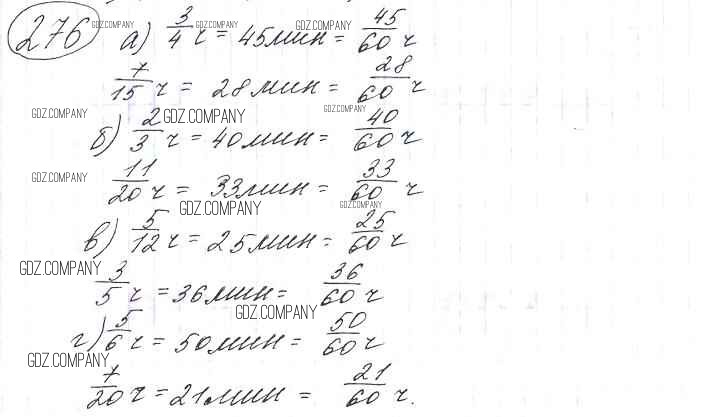 276 а) 3/4 ч = 45 мин = 45/60 ч
7/15 ч = 28 мин = 28/60 ч
б) 2/3 ч = 40 мин = 40/60 ч
11/20 ч = 33 мин = 33/60 ч
в) 5/12 ч = 25 мин = 25/60 ч
3/5 ч = 36 мин = 36/60 ч
г) 5/6 ч = 50 мин = 50/60 ч
7/20 ч = 21 мин = 21/60 ч.
GDZ.COMPANY GDZ.COMPANY GDZ.COMPANY
GDZ.COMPANY GDZ.COMPANY GDZ.COMPANY
GDZ.COMPANY
GDZ.COMPANY GDZ.COMPANY
GDZ.COMPANY
GDZ.COMPANY
GDZ.COMPANY